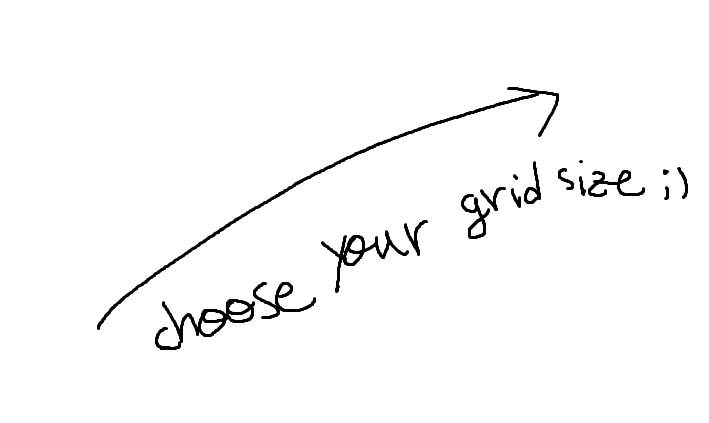 choose your grid size ;)